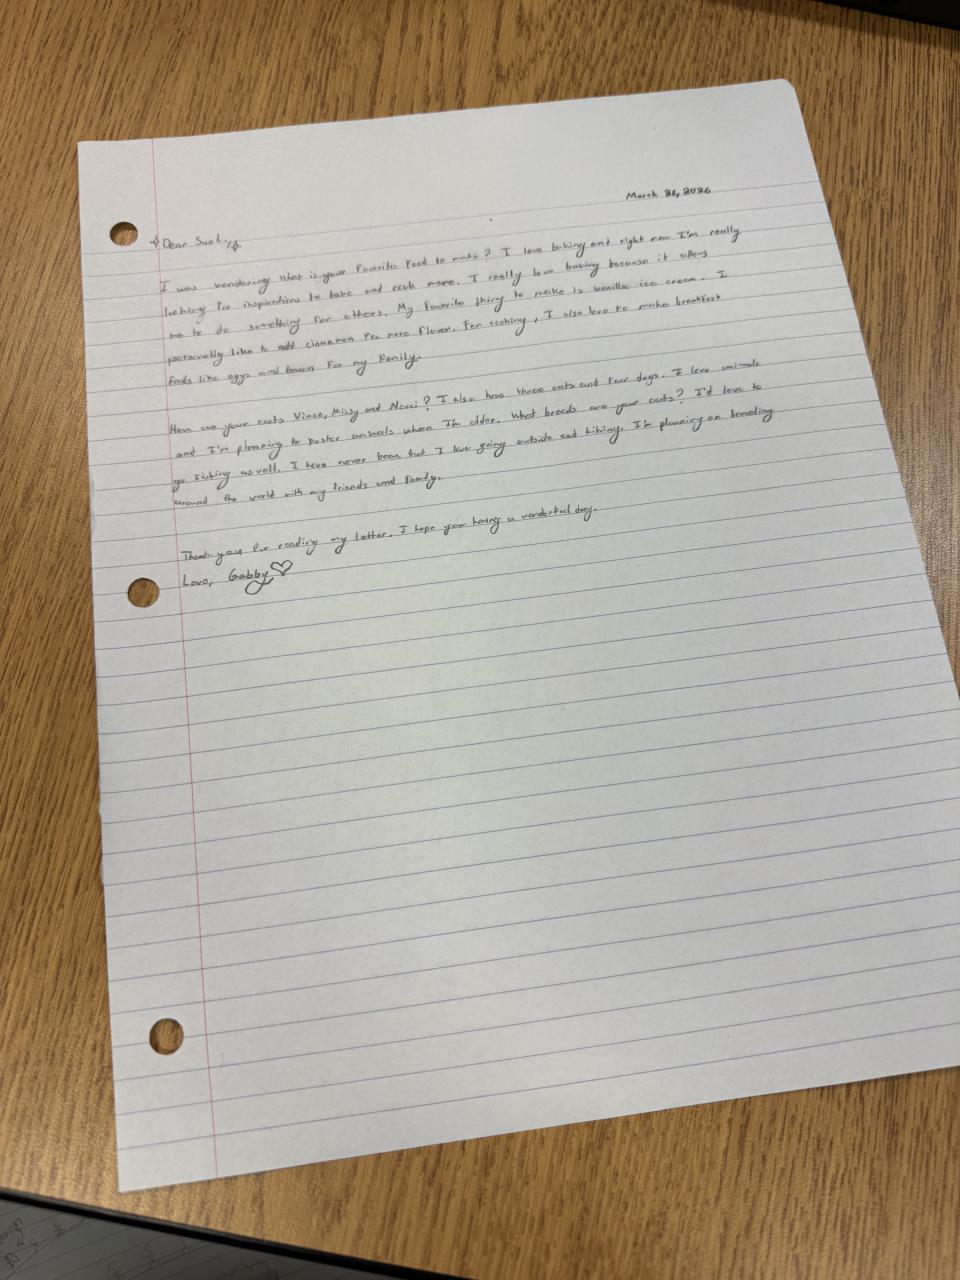 March 26, 2026
Dear Sue L.,
I was wondering what is your favorite food to make? I love baking and right now I'm really
looking for inspiration to bake and cook more. I really love baking because it allows
me to do something for others. My favorite thing to make is vanilla ice cream. I
personally like to add cinnamon for more flavor. For cooking, I also love to make breakfast
foods like eggs and bacon for my family.
How are your cats Vince, Missy and ? I also have three cats and four dogs. I love animals
and I'm planning to foster animals when I'm older. What breeds are your cats? I'd love to
go fishing as well. I have never been but I love going outside and hiking. I'm planning on traveling
around the world with my friends and family.
Thank you for reading my letter. I hope your having a wonderful day.
Love, Gabby